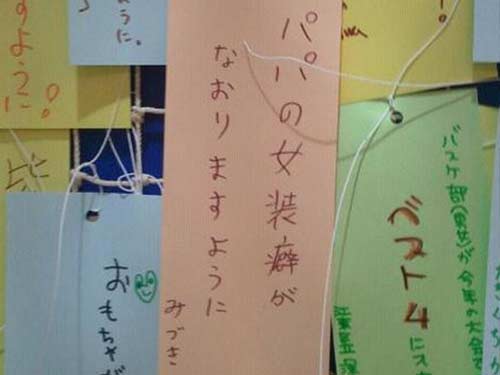 パパの女装癖が
なおりますように
みづき
バスケ部(男女)が今年の大会で
ベスト4に
おもちゃが
すように!
ように。